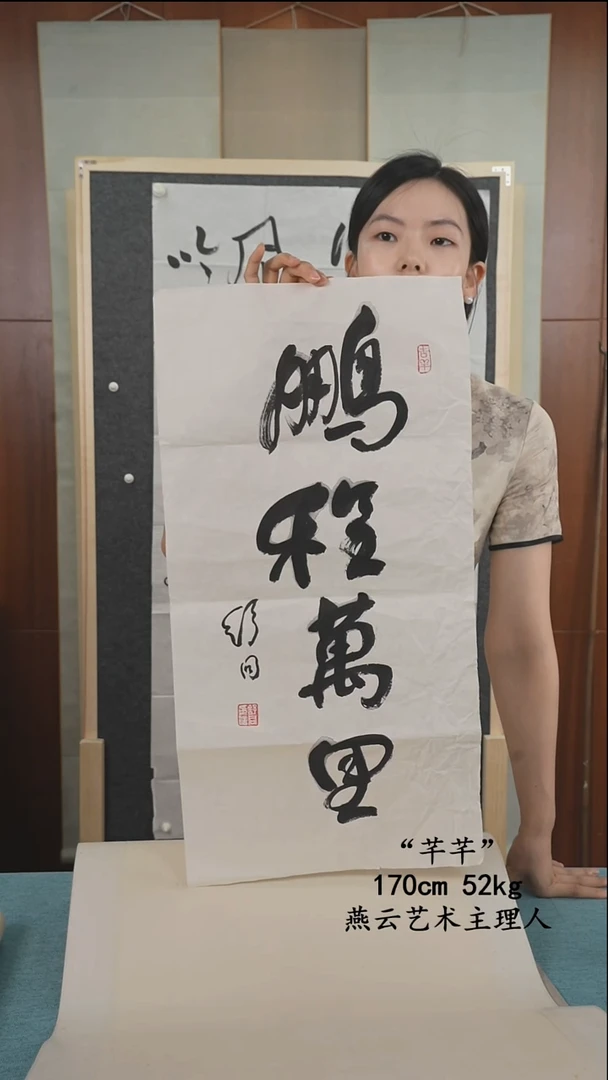 鵬程萬里
舒同
“芊芊”
170cm 52kg
燕云艺术主理人